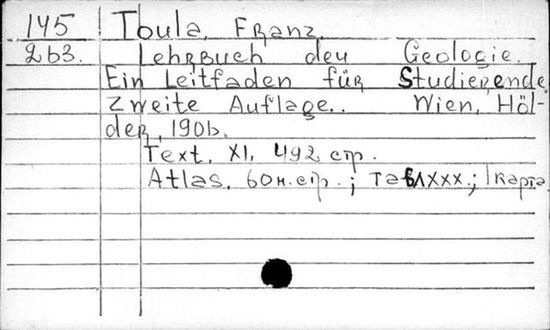 145 Toula, Franz.
263. Lehrbuch deu Geologie.
Ein Leitfaden für Studierende
Zweite Auflage.. Wien, Höl-
der, 1906.
Text. XI, 492 стр.
Atlas. 60 н.стр.; таб. XXX.; 1 карта